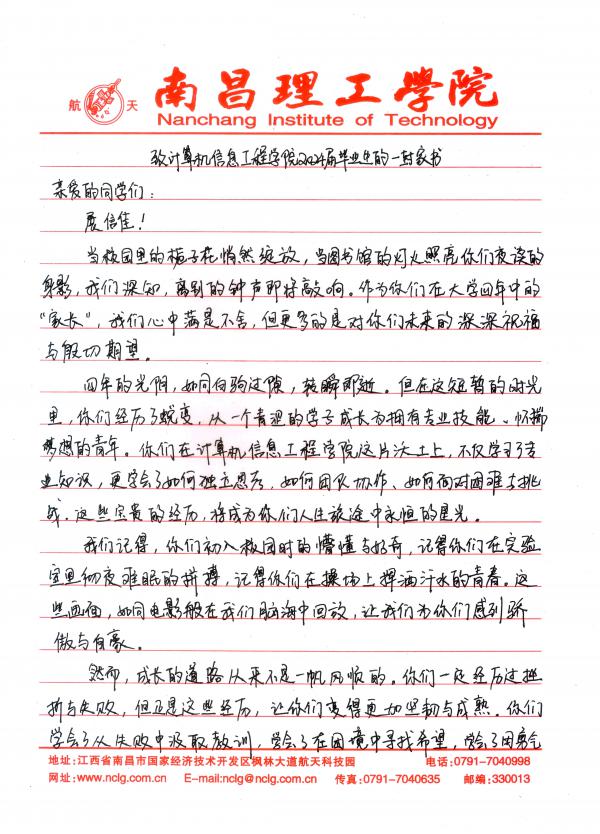 航 天 南昌理工學院
Nanchang Institute of Technology
致计算机信息工程学院2024届毕业生的一封家书
亲爱的同学们：
展信佳！
当校园里的栀子花悄然绽放，当图书馆的灯火照亮你们夜读的
身影，我们深知，离别的钟声即将敲响。作为你们在大学四年中的
“家长”，我们心中满是不舍，但更多的是对你们未来的深深祝福
与殷切期望。
四年的光阴，如同白驹过隙，转瞬即逝。但在这短暂的时光
里，你们经历了蜕变，从一个青涩的学子成长为拥有专业技能、怀揣
梦想的青年。你们在计算机信息工程学院这片沃土上，不仅学习了专
业知识，更学会了如何独立思考，如何团队协作、如何面对困难与挑
战。这些宝贵的经历，将成为你们人生旅途中永恒的星光。
我们记得，你们初入校园时的懵懂与好奇，记得你们在实验
室里彻夜难眠的拼搏，记得你们在操场上挥洒汗水的青春。这
些画面，如同电影般在我们脑海中回放，让我们为你们感到骄
傲与自豪。
然而，成长的道路从来不是一帆风顺的。你们一定经历过挫
折与失败，但正是这些经历，让你们变得更加坚韧与成熟。你们
学会了从失败中汲取教训，学会了在困境中寻找希望，学会了用勇气
地址:江西省南昌市国家经济技术开发区枫林大道航天科技园 电话:0791-7040998
网址:www.nclg.com E-mail:nclg@nclg.com 传真:0791-7040635 邮编:330013